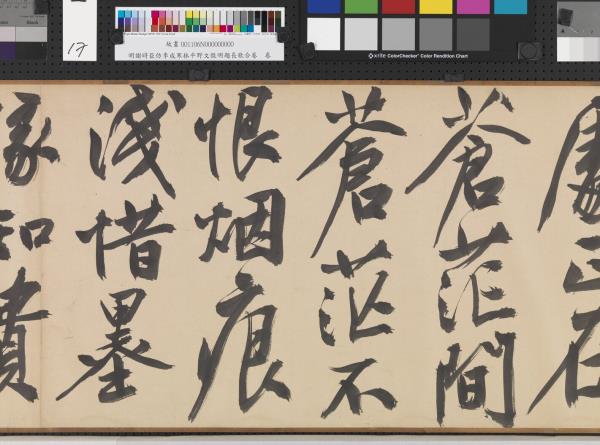 Black
17
故畫 001106N000000000
明謝時臣仿李成寒林平野文徵明題長歌合卷 卷
x·rite ColorChecker® Color Rendition Chart
處正在
蒼茫間
蒼茫不
恨烟痕
淺惜墨
家知貴